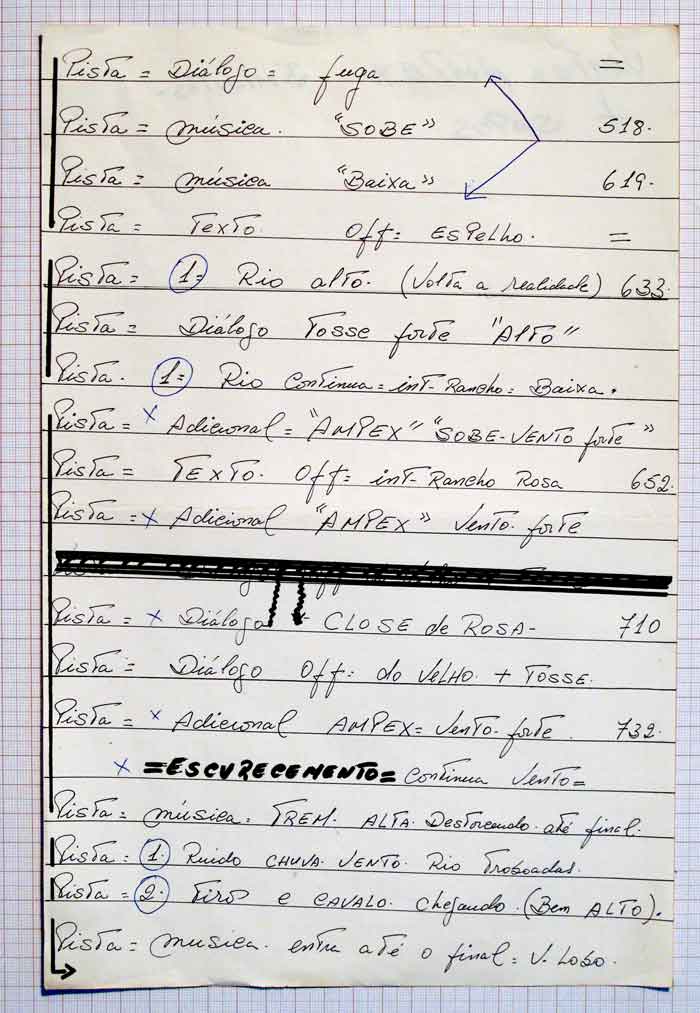 Pista = Diálogo = fuga =
Pista = música. "SOBE" 518.
Pista = música "Baixa" 619.
Pista = Texto. Off: ESPelho. =
Pista = 1= Rio alto. (Volta a realidade) 633.
Pista = Diálogo Tosse forte "AlTo"
Pista. 1= Rio Continua = int-Rancho = Baixa.
Pista = x Adicional = "AMPEX" "SOBE-VENTO forte"
Pista = TEXTO. Off: int-Rancho Rosa 652.
Pista = x Adicional "AMPEX" Vento. forte
Pista = x Diálogo - CLOSE de ROSA- 710
Pista = Diálogo Off: do VelHO. + TOSSE.
Pista = x Adicional AMPEX = Vento. forte. 732.
x =ESCURECEMENTO= Continua Vento=
Pista = música. TREM. ALTA. Destorcendo. até final.
Pista = 1. Ruido CHUVA. VENTO. Rio Troboadas.
Pista = 2. Tiros e CAVALO. chegando. (Bem ALTO).
Pista = musica. entra até o final = V. Lobo.